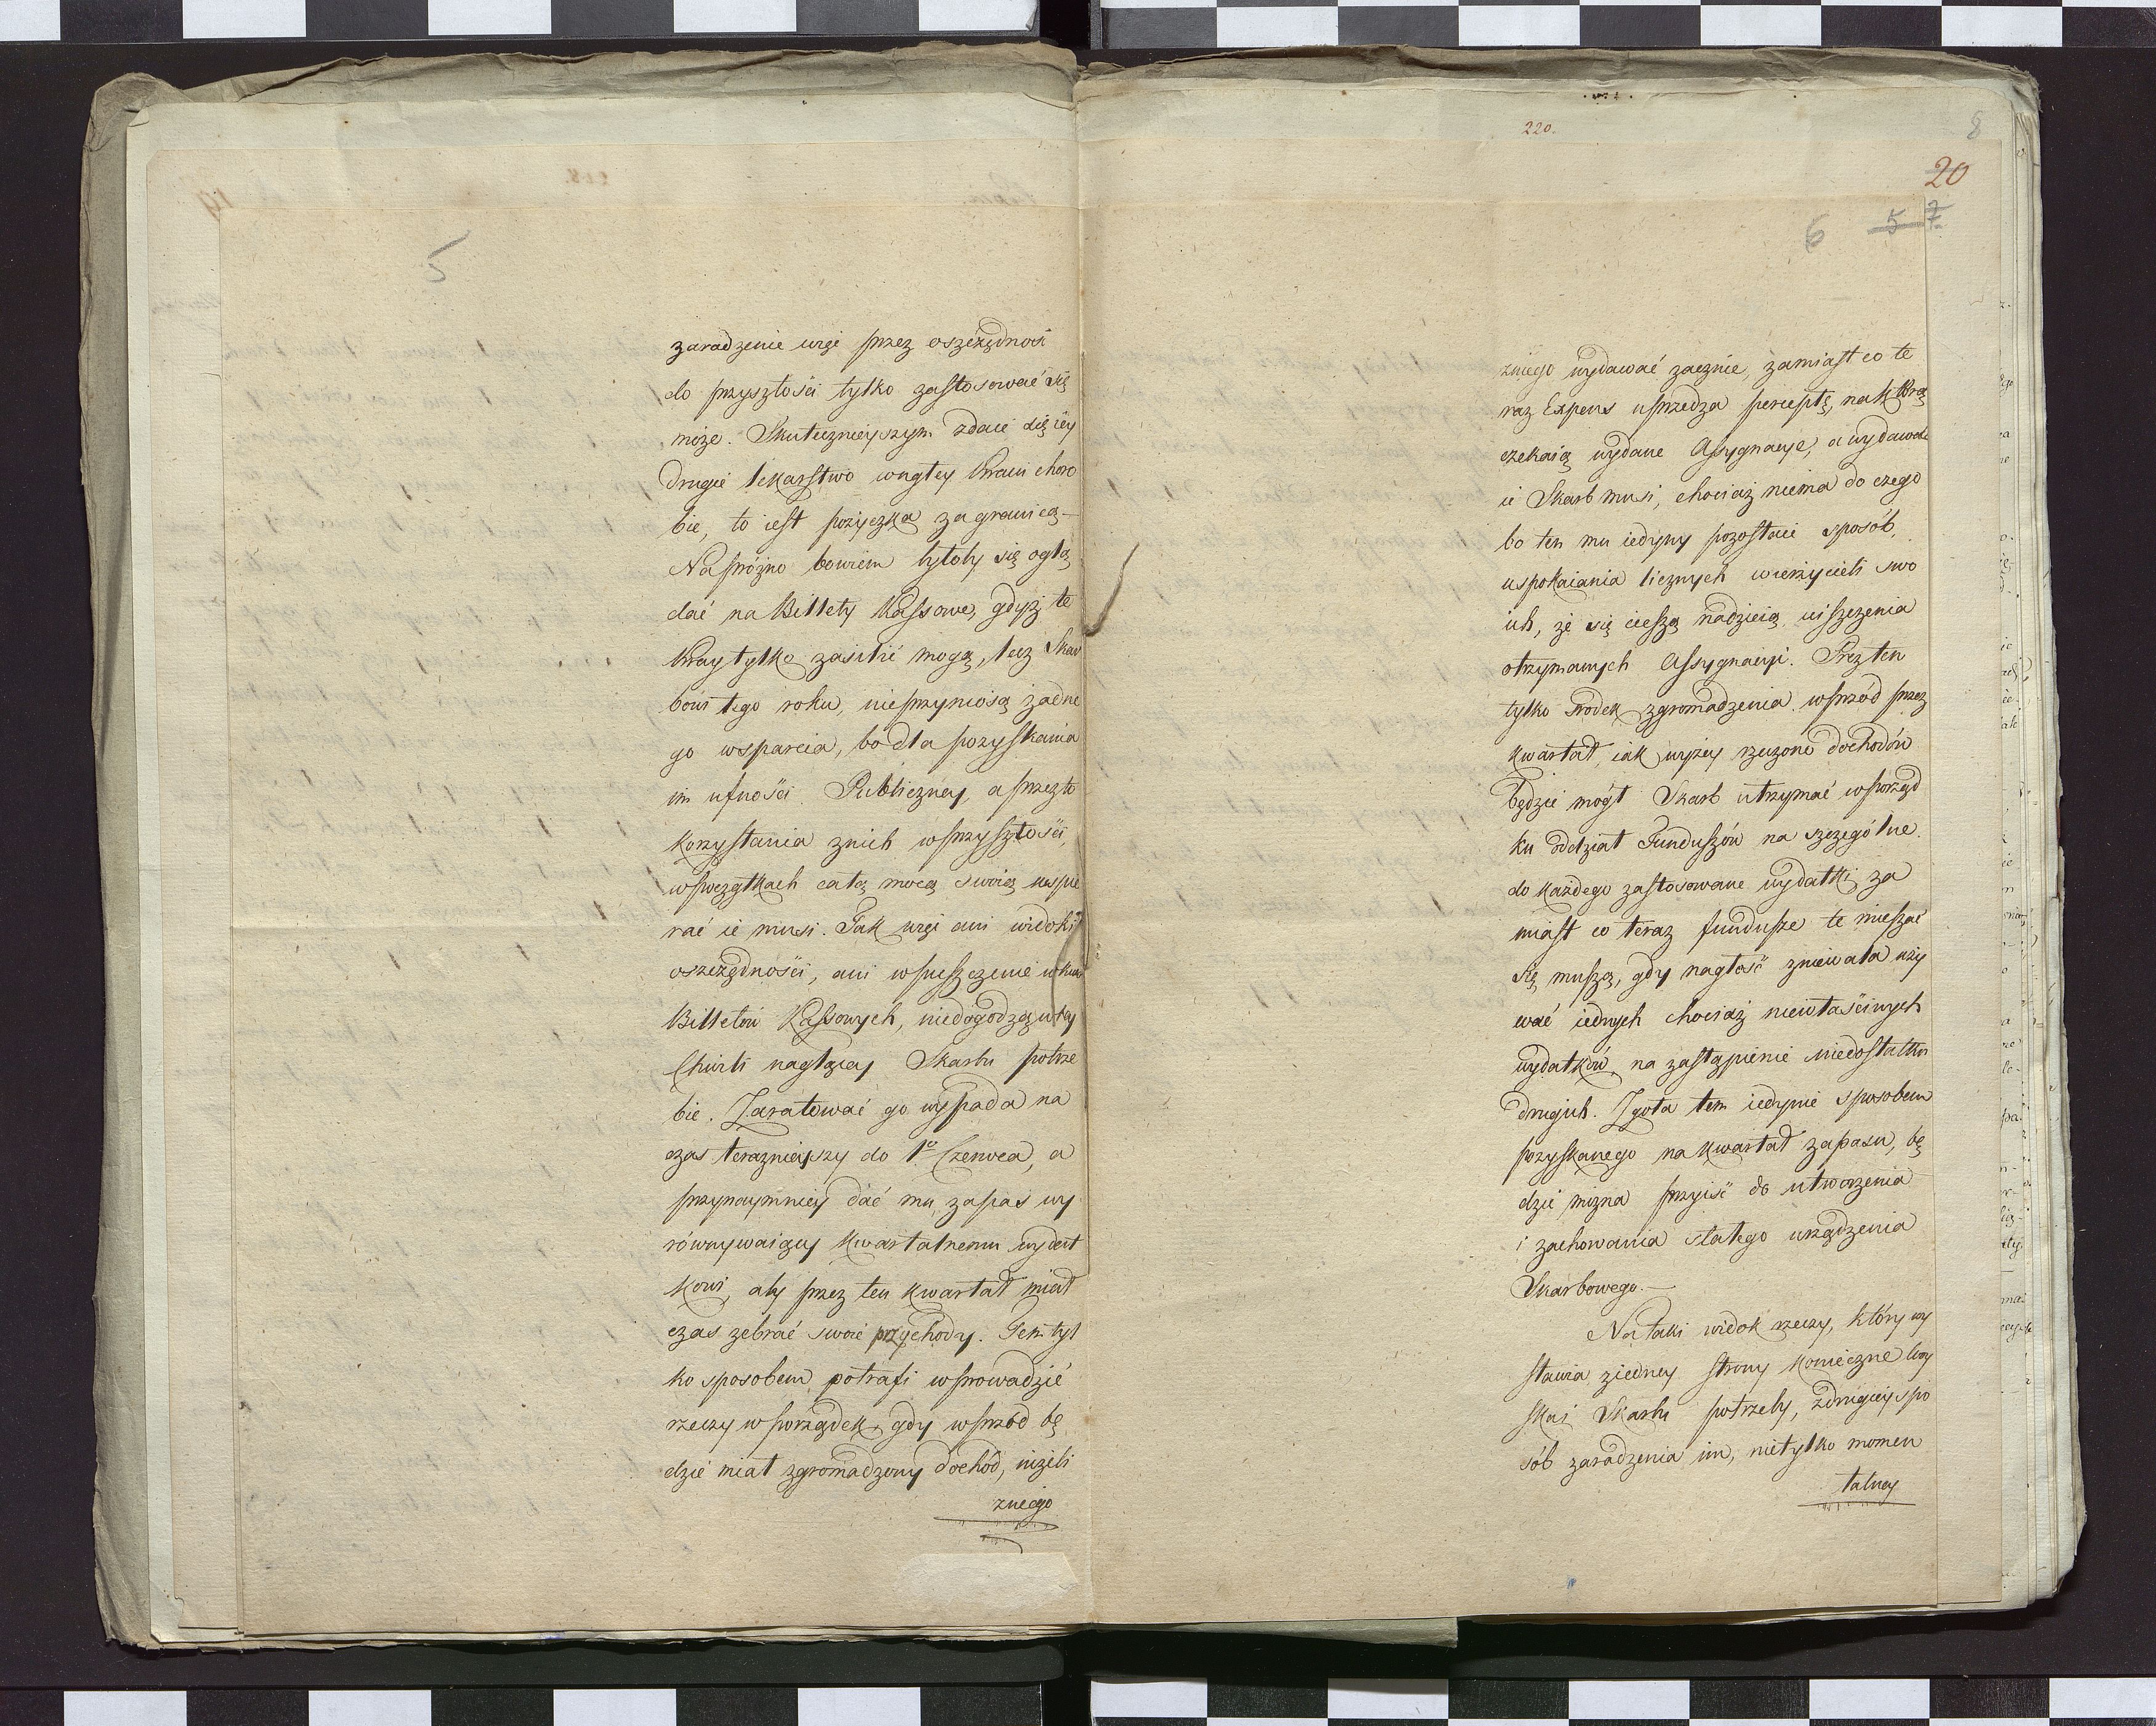 5
zaradzenie więc przez oszczędność
do przyszłości tylko zastosować się
może. Skutecznieyszym zdaie się iey
drugie lekarstwo wnagłey Kraiu choro
bie, to iest pożyczka zagranicą —
Napróżno bowiem byłoby się oglą
dać na Billety Kassowe, gdyż te
Kray tylko zasilić mogą, lecz Skar
bowi tego roku, nieprzyniosą żadne
go wsparcia, bo dla pozyskania
im ufności Publiczney, a przezto
korzystania znich wprzyszłości,
wpoczątkach całą mocą swoią wspie
rać ie musi. Tak więc ani widoki
oszczędności, ani wpuszczenie wkurs
Billetow Kassowych, niedogodzą wtey
Chwili naglącey Skarbu potrze
bie. Zaratować go wypada na
czas teraznieyszy do 1o Czerwca, a
przynaymniey dać mu zapas wy
równywaiący kwartalnemu wydat
kowi, aby przez ten kwartał miał
czas zebrać swoie przychody. Tem tyl
ko sposobem potrafi wprowadzić
rzeczy w porządek, gdy wprzód bę
dzie miał zgromadzony dochód, niżeli
zniego
220.
8
20
6 5 7
zniego wydawać zacznie, zamiast co te
raz Expens uprzedza perceptę, na którą
czekaią wydane Assygnacye, a wydawać
ie Skarb musi, chociaż niema do czego
bo ten mu iedyny pozostaie sposób,
uspokaiania licznych wierzycieli swo
ich, że się cieszą nadzieią uiszczenia
otrzymanych Assygnacyi. Przez ten
tylko srodek zgromadzenia wprzód przez
kwartał, iak wyżey rzeczone dochodów
będzie mógł Skarb utrzymać wporząd
ku oddział Funduszów na szczególne
do każdego zastosowane wydatki, za
miast co teraz fundusze te mieszać
się muszą, gdy nagłość zniewala uży
wać iednych chociaż niewłaściwych
wydatków, na zastąpienie niedostatku
drugich. Zgoła tem iedynie sposobem
pozyskanego na kwartał zapasu, bę
dzie można przyiść do utworzenia
i zachowania stałego urządzenia
Skarbowego. —
Na taki widok rzeczy, który wy
stawia ziedney strony konieczne
Skarbu potrzeby, zdrugiey spo
sób zaradzenia im, nietylko momen
talney